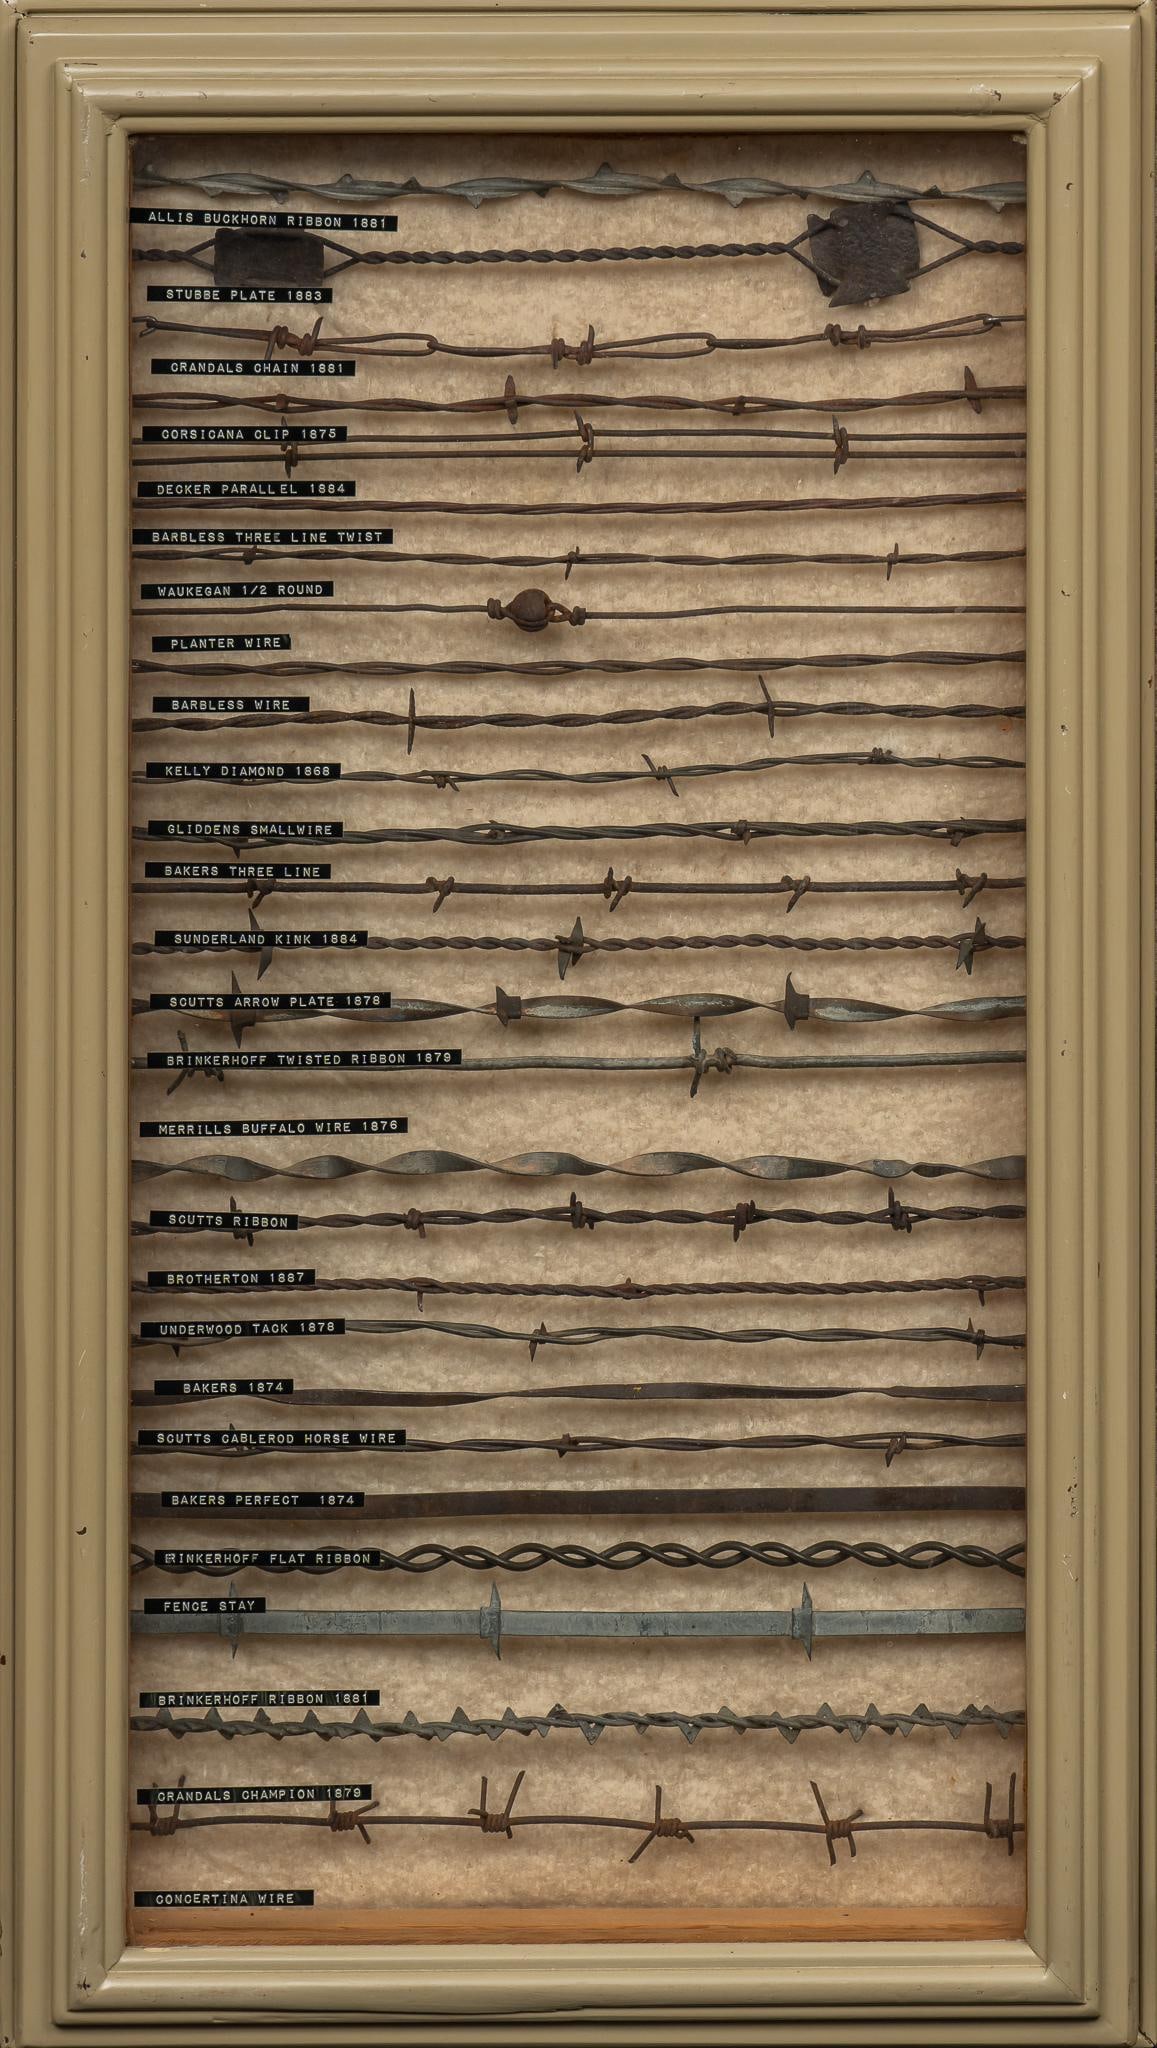 ALLIS BUCKHORN RIBBON 1881
STUBBE PLATE 1883
CRANDALS CHAIN 1881
CORSICANA CLIP 1875
DECKER PARALLEL 1884
BARBLESS THREE LINE TWIST
WAUKEGAN 1/2 ROUND
PLANTER WIRE
BARBLESS WIRE
KELLY DIAMOND 1868
GLIDDENS SMALLWIRE
BAKERS THREE LINE
SUNDERLAND KINK 1884
SCUTTS ARROW PLATE 1878
BRINKERHOFF TWISTED RIBBON 1879
MERRILLS BUFFALO WIRE 1876
SCUTTS RIBBON
BROTHERTON 1887
UNDERWOOD TACK 1878
BAKERS 1874
SCUTTS CABLEROD HORSE WIRE
BAKERS PERFECT 1874
BRINKERHOFF FLAT RIBBON
FENCE STAY
BRINKERHOFF RIBBON 1881
CRANDALS CHAMPION 1879
CONCERTINA WIRE